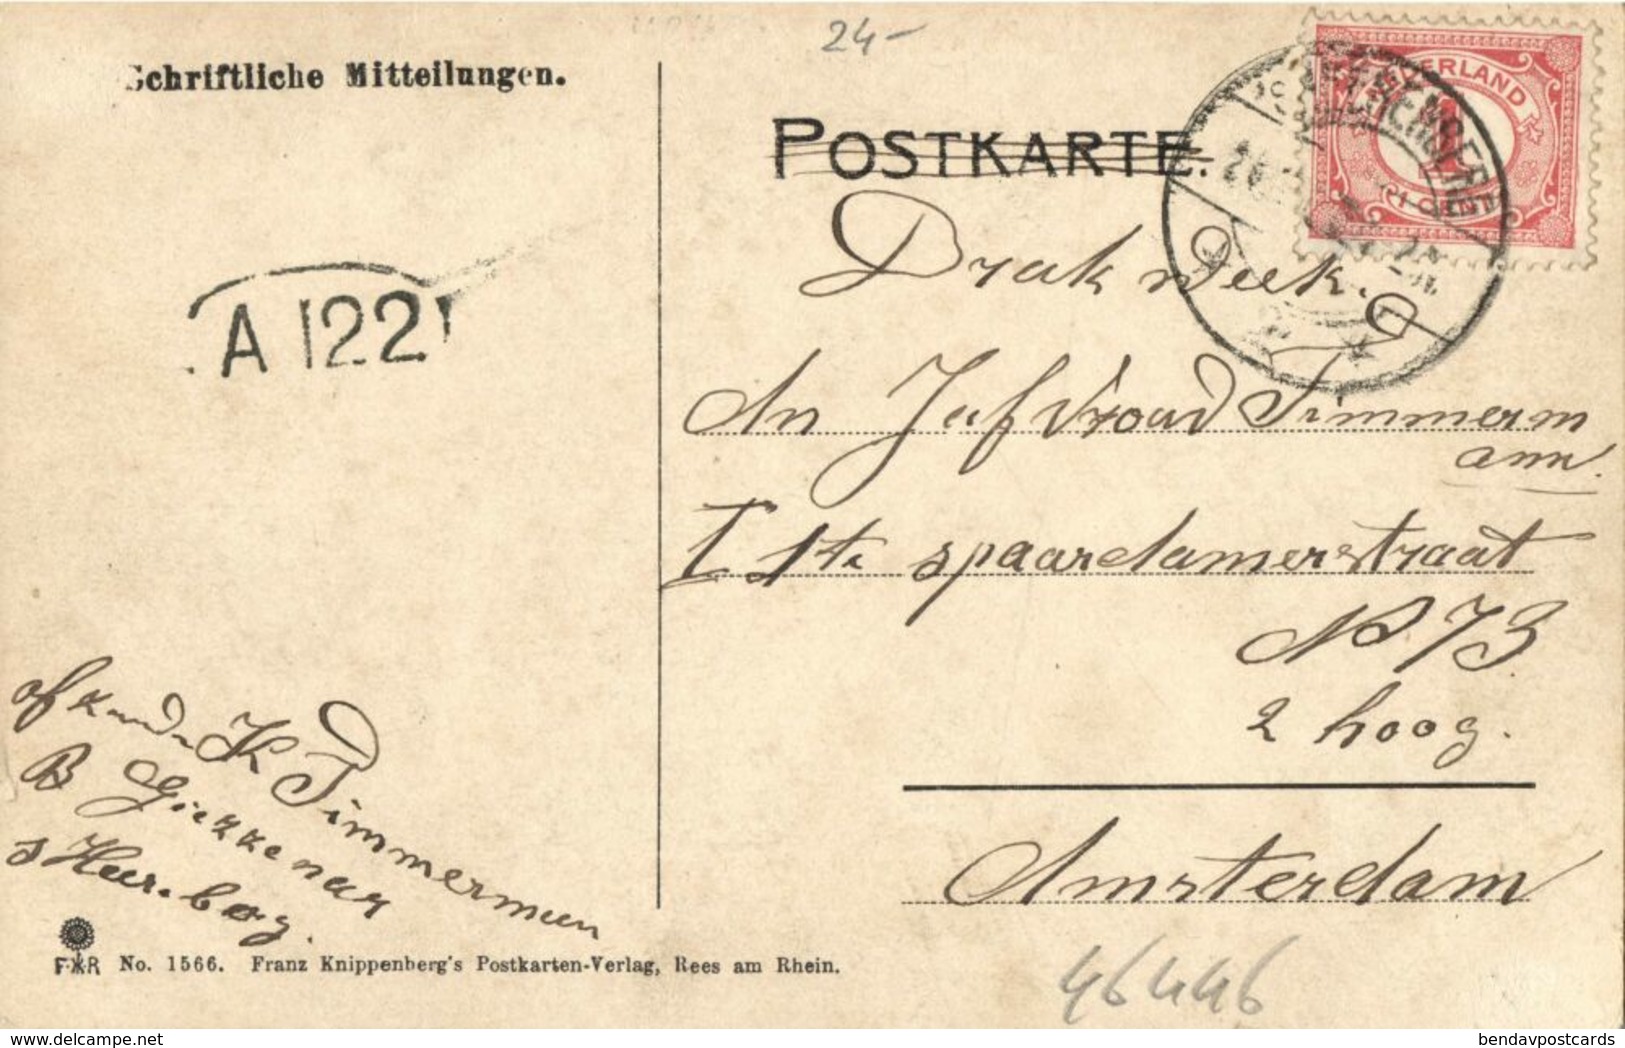 24-
Schriftliche Mitteilungen.
POSTKARTE.
NEDERLAND
'S HEERENBERG
A 1221
Drukwerk.
An Jufvrouw Timmerm
ann.
1ste spaardamerstraat
No 73
2 hoog.
Amsterdam
afzender K Timmerman
B
s Heerenberg.
F.K.R No. 1566. Franz Knippenberg's Postkarten-Verlag, Rees am Rhein.
46446
delcampe.net
bendavpostcards